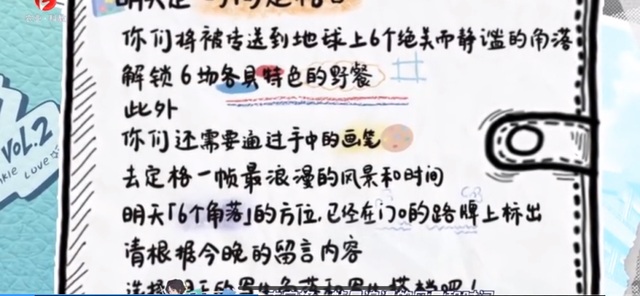 你们将被传送到地球上6个绝美而静谧的角落
解锁6场各具特色的野餐
此外
你们还需要通过手中的画笔
去定格一帧最浪漫的风景和时间
明天「6个角落」的方位,已经在门口的路牌上标出
请根据今晚的留言内容
VOL.2
LOVE